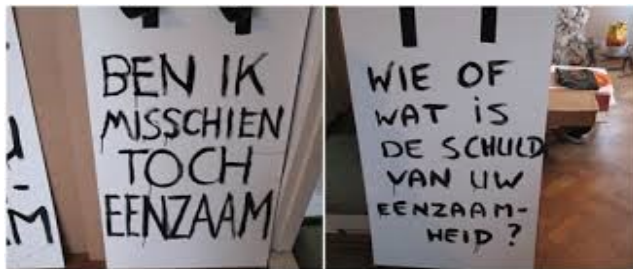 BEN IK
MISSCHIEN
TOCH
EENZAAM
WIE OF
WAT IS
DE SCHULD
VAN UW
EENZAAM-
HEID?